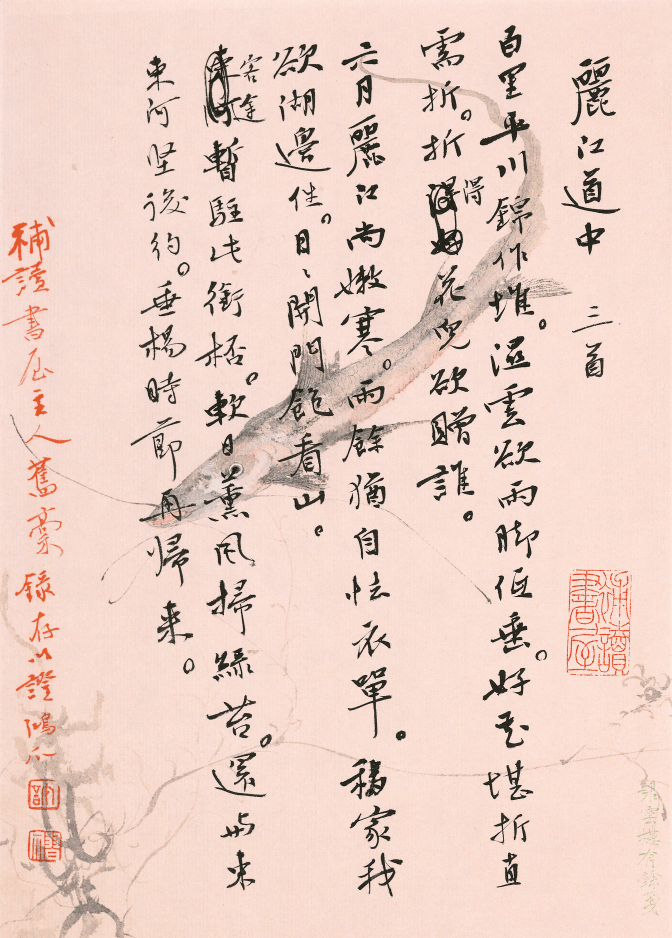 麗江道中 三首
百里平川錦作堆。濕雲欲雨腳低垂。好花堪折直
需折。折得花兒欲贈誰。
六月麗江尚嫩寒。雨餘猶自怯衣單。移家我
欲湖邊住。日日開門飽看山。
客途暫駐此銜杯。軟日薰風掃綠苔。還與東
東河堅後約。垂楊時節再歸來。
補讀書屋主人舊稾錄存以證鴻爪
補讀書屋